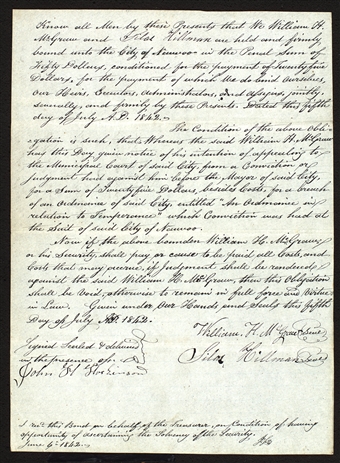 Know all Men by these Presents that We William H.
McGraw and Silas Hillman are held and firmly
bound unto the City of Nauvoo in the Penal Sum of
Fifty Dollars, conditioned for the payment of Twenty five
Dollars, for the payment of which We do bind ourselves,
our Heirs, Executors, administrators, and assigns, jointly,
severally, and firmly by these Presents. Dated this fifth
day of July A.D. 1842.
The Condition of the above Obli-
gation is such, that Whereas the said William H. McGraw
has this Day given notice of his intention of appealing to
the Municipal Court of said City, from a Conviction or
Judgment had against him before the Mayor of said City,
for a Sum of Twenty five Dollars, besides Costs, for a breach
of an Ordinance of said City, entitled "An Ordinance in
relation to Temperance" which Conviction was had at
the Suit of said City of Nauvoo.
Now if the above bounden William H. McGraw,
or his Security, shall pay or cause to be paid all Costs, and
Costs that may accrue, if Judgment shall be rendered
against the said William H. McGraw, then this Obligation
shall be Void, otherwise to remain in full force and Virtue
in Law. Given under Our Hands and Seals this fifth
Day of July AD. 1842.
William H. McGraw
Signed Sealed & delivered
in the presence of
Silas Hillman
John H.
on behalf of the Treasurer, on Condition of having
opportunity of ascertaining the Solvency of the Security
June 6th 1842.